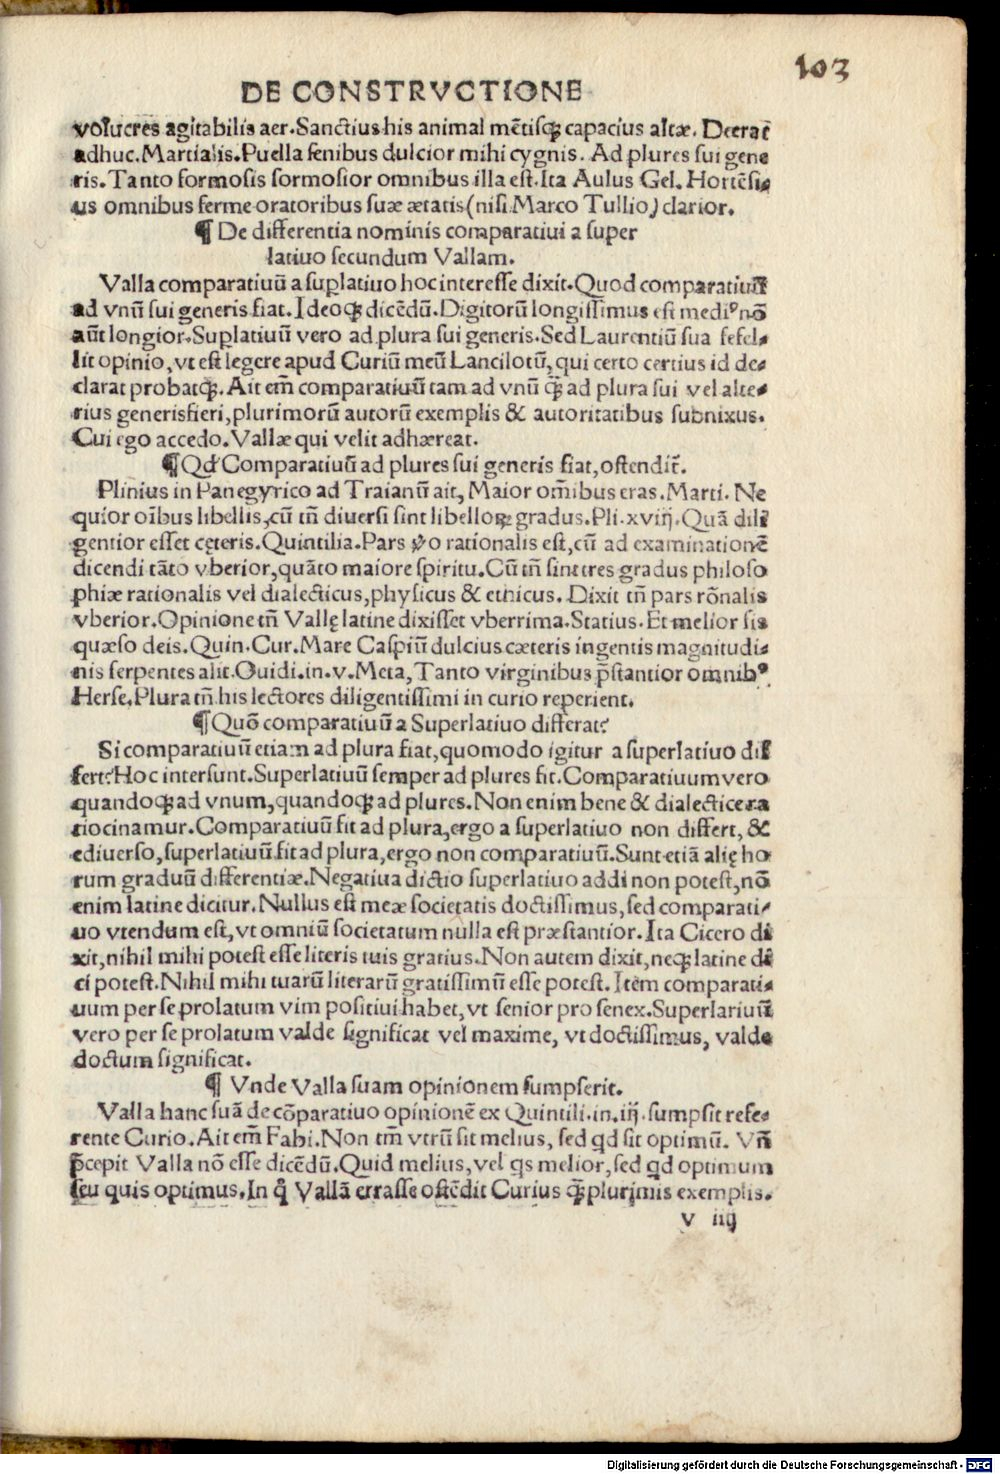 103
DE CONSTRVCTIONE
volucres agitabilis aer. Sanctius his animal mētisq; capacius altæ. Deerat
adhuc. Martialis. Puella senibus dulcior mihi cygnis. Ad plures sui gene
ris. Tanto formosis formosior omnibus illa est. Ita Aulus Gel. Hortēsi-
us omnibus ferme oratoribus suæ ætatis (nisi Marco Tullio) clarior.
¶ De differentia nominis comparatiui a super
latiuo secundum Vallam.
Valla comparatiuū a suplatiuo hoc interesse dixit. Quod comparatiuū
ad vnū sui generis fiat. Ideoq; dicēdū. Digitorū longissimus est mediꝰ nō
aūt longior. Suplatiuū vero ad plura sui generis. Sed Laurentiū sua fefel-
lit opinio, vt est legere apud Curiū meū Lancilotū, qui certo certius id de-
clarat probatq;. Ait em̄ comparatiuū tam ad vnū q̄ ad plura sui vel alte-
rius generis fieri, plurimorū autorū exemplis & autoritatibus subnixus.
Cui ego accedo. Vallæ qui velit adhæreat.
¶ Qd Comparatiuū ad plures sui generis fiat, ostendit̄.
Plinius in Panegyrico ad Traianū ait, Maior om̄ibus eras. Marti. Ne
quior oībus libellis, cū tn̄ diuersi sint libelloꝝ gradus. Pli. xviij. Quā dili
gentior esset cęteris. Quintilia. Pars ꝟo rationalis est, cū ad examinationē
dicendi tāto vberior, quāto maiore spiritu. Cū tn̄ sint tres gradus philoso
phiæ rationalis vel dialecticus, physicus & ethicus. Dixit tn̄ pars rōnalis
vberior. Opinione tn̄ Vallę latine dixisset vberrima. Statius. Et melior sis
quæso deis. Quin. Cur. Mare Caspiū dulcius cæteris ingentis magnitudi-
nis serpentes alit. Ouidi. in. v. Meta, Tanto virginibus p̄stantior omnibꝰ
Herse. Plura tn̄ his lectores diligentissimi in curio reperient.
¶ Quō comparatiuū a Superlatiuo differat?
Si comparatiuū etiam ad plura fiat, quomodo igitur a superlatiuo dif
fert? Hoc intersunt. Superlatiuū semper ad plures fit. Comparatiuum vero
quandoq; ad vnum, quandoq; ad plures. Non enim bene & dialectice ra
tiocinamur. Comparatiuū fit ad plura, ergo a superlatiuo non differt, &
ediuerso, superlatiuū fit ad plura, ergo non comparatiuū. Sunt etiā alię ho
rum graduū differentiæ. Negatiua dictio superlatiuo addi non potest, nō
enim latine dicitur. Nullus est meæ societatis doctissimus, sed comparati-
uo vtendum est, vt omniū societatum nulla est præstantior. Ita Cicero di
xit, nihil mihi potest esse literis tuis gratius. Non autem dixit, neq; latine di
ci potest. Nihil mihi tuarū literarū gratissimū esse potest. Item comparati-
uum per se prolatum vim positiui habet, vt senior pro senex. Superlatiuū
vero per se prolatum valde significat vel maxime, vt doctissimus, valde
doctum significat.
¶ Vnde Valla suam opinionem sumpserit.
Valla hanc suā de cōparatiuo opinionē ex Quintili. in. iij. sumpsit refe-
rente Curio. Ait em̄ Fabi. Non tm̄ vtrū sit melius, sed qd sit optimū. Vn̄
p̄cepit Valla nō esse dicēdū. Quid melius, vel qs melior, sed qd optimum
seu quis optimus. In q̊ Vallā errasse ostēdit Curius q̄plurimis exemplis.
v iiij
Digitalisierung gefördert durch die Deutsche Forschungsgemeinschaft - DFG